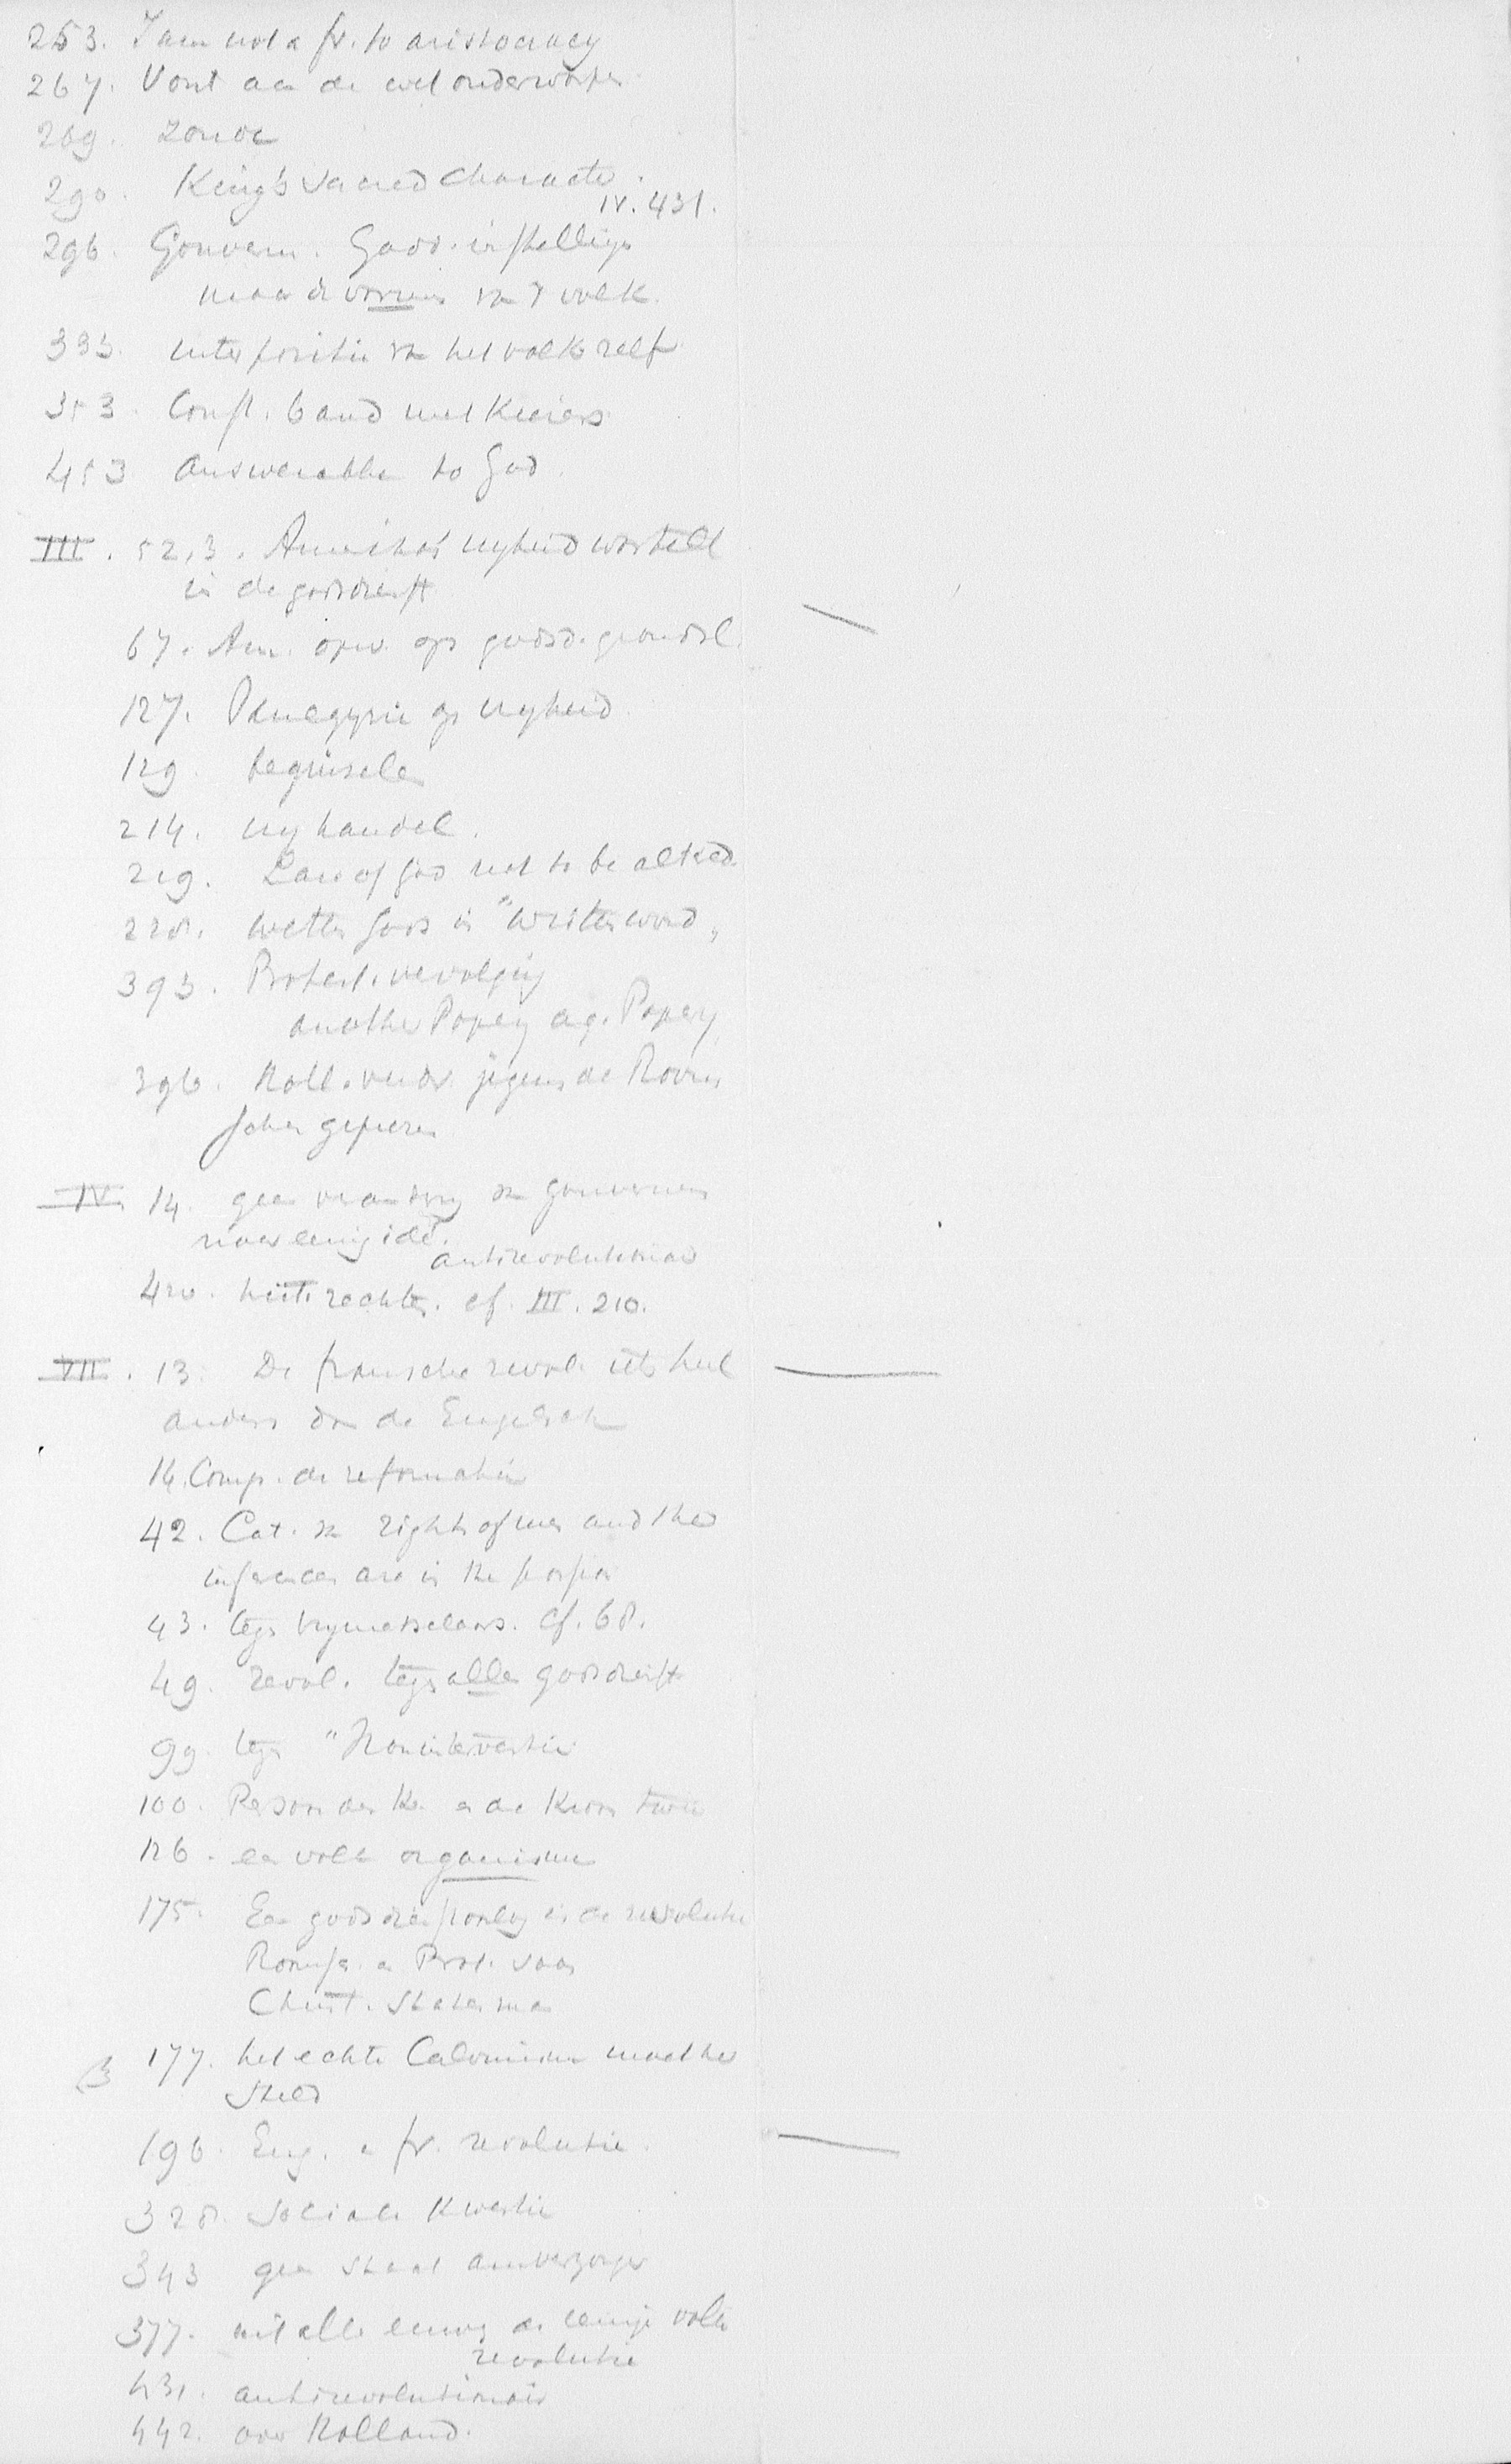 253. I am not a fr. to aristocracy
267. Vorst aan de wet onderworpen
269. zonde
290. King's sacred character.
IV. 431.
296. Gouvern. Gods. instelling
maar de vormen van 't volk.
333. interpositie van het volk zelf
353. Const. band met Kiezers
453 answerable to God.
III. 52,3. Amerika's vryheid wortelt
in de godsdienst
67. Am. opv. op godsd. grondsl.
127. Panegyrie op vryheid
129. beginselen
214. vryhandel.
219. Law of God not to be altered
228. wetten Gods in "written word"
393. Protest. vervolging
another Popery ag. Popery
396. Holl. verdr. jegens de Roomschen
geprezen
IV. 14. geen verandering van gouvernem.
naar eenig idé.
antirevolutionair
420. hist. rechten. cf. III. 210.
VII. 13. De fransche revol. iets heel
anders dan de Engelsche
14. Comp. de reformatie
42. Cat. van rights of men and the
inferences are in the
43. tegen vrymetselaars. cf. 68.
49. revol. tegen alle godsdienst
99. tegen "Noninterventie
100. Persoon des Ks. en de Kroon twee
126. een volk organisme
175. Een godsdienstoorlog is de revolutie
Roomsch. en Prot. voor
Christ. Staten
177. het echte Calvinisme
196. Eng. en fr. revolutie.
328. Sociale Kwestie
343 geen staat armverzorger
377. uit alle eeuwen de eenige volks
revolutie
431. antirevolutionair
442. over Holland.